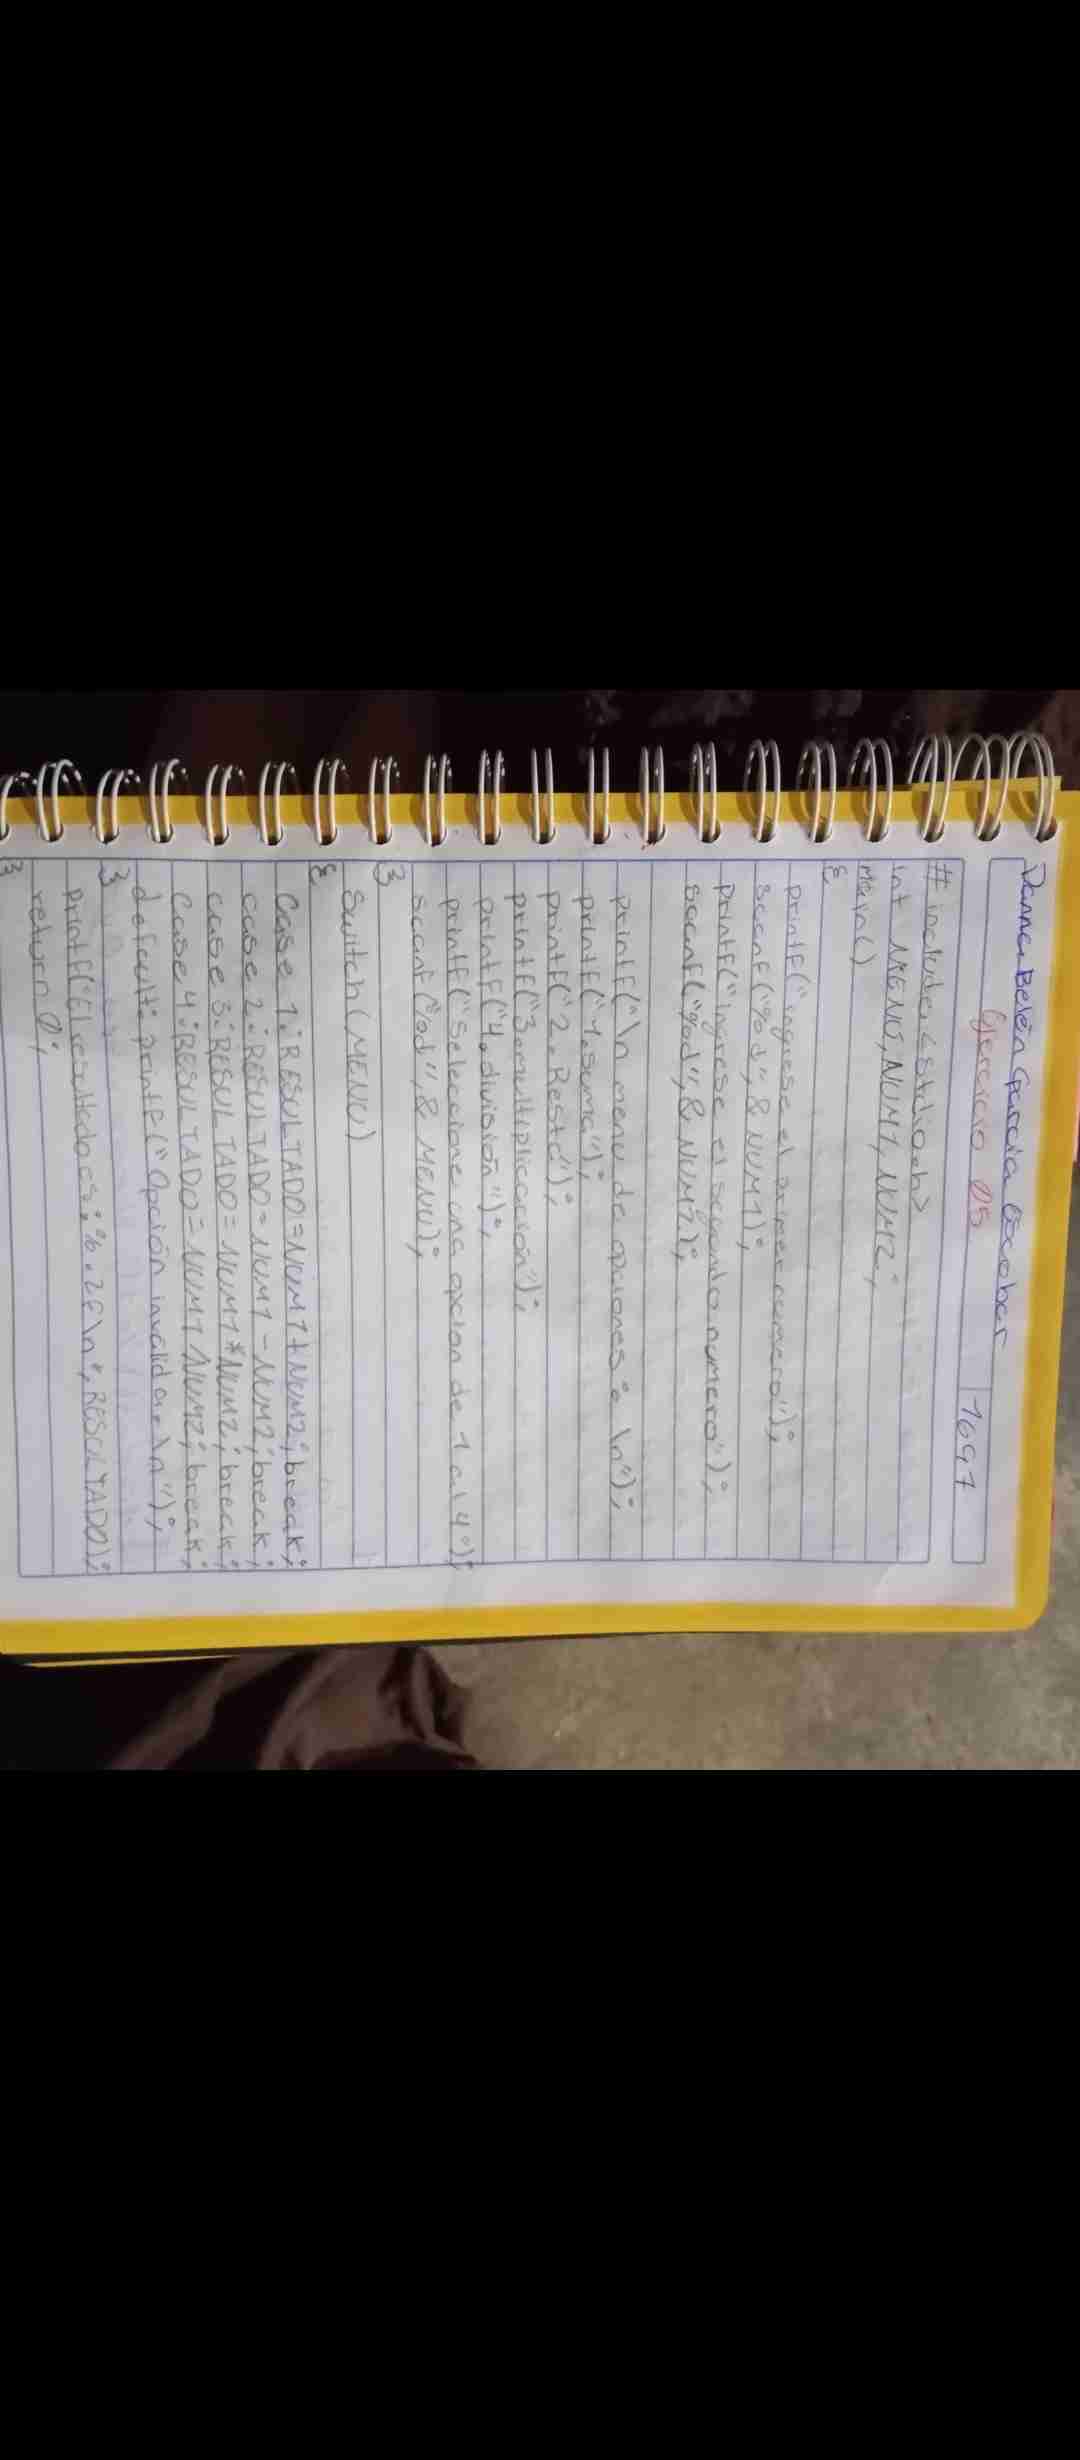 Danna Belén García Escobar
Ejercicio 05
1691
# include <stdio.h>
int MENU, NUM1, NUM2;
Main()
{
printf("ingrese el primer numero");
scanf("%d", & NUM1);
printf("ingrese el segundo numero");
scanf("%d", & NUM2);
printf("\n menu de opciones: \n");
printf("1. suma");
printf("2. Resta");
printf("3. multiplicación");
printf("4. división");
printf("Seleccione una opcion de 1 al 4");
scanf("%d", & MENU);
}
Switch (MENU)
{
Case 1: RESULTADO = NUM1 + NUM2; break;
case 2: RESULTADO = NUM1 - NUM2; break;
case 3: RESULTADO = NUM1 * NUM2; break;
Case 4: RESULTADO = NUM1 / NUM2; break;
default: printf("Opción invalida. \n");
}
printf("El resultado es: %.2f\n", RESULTADO);
return 0;
}